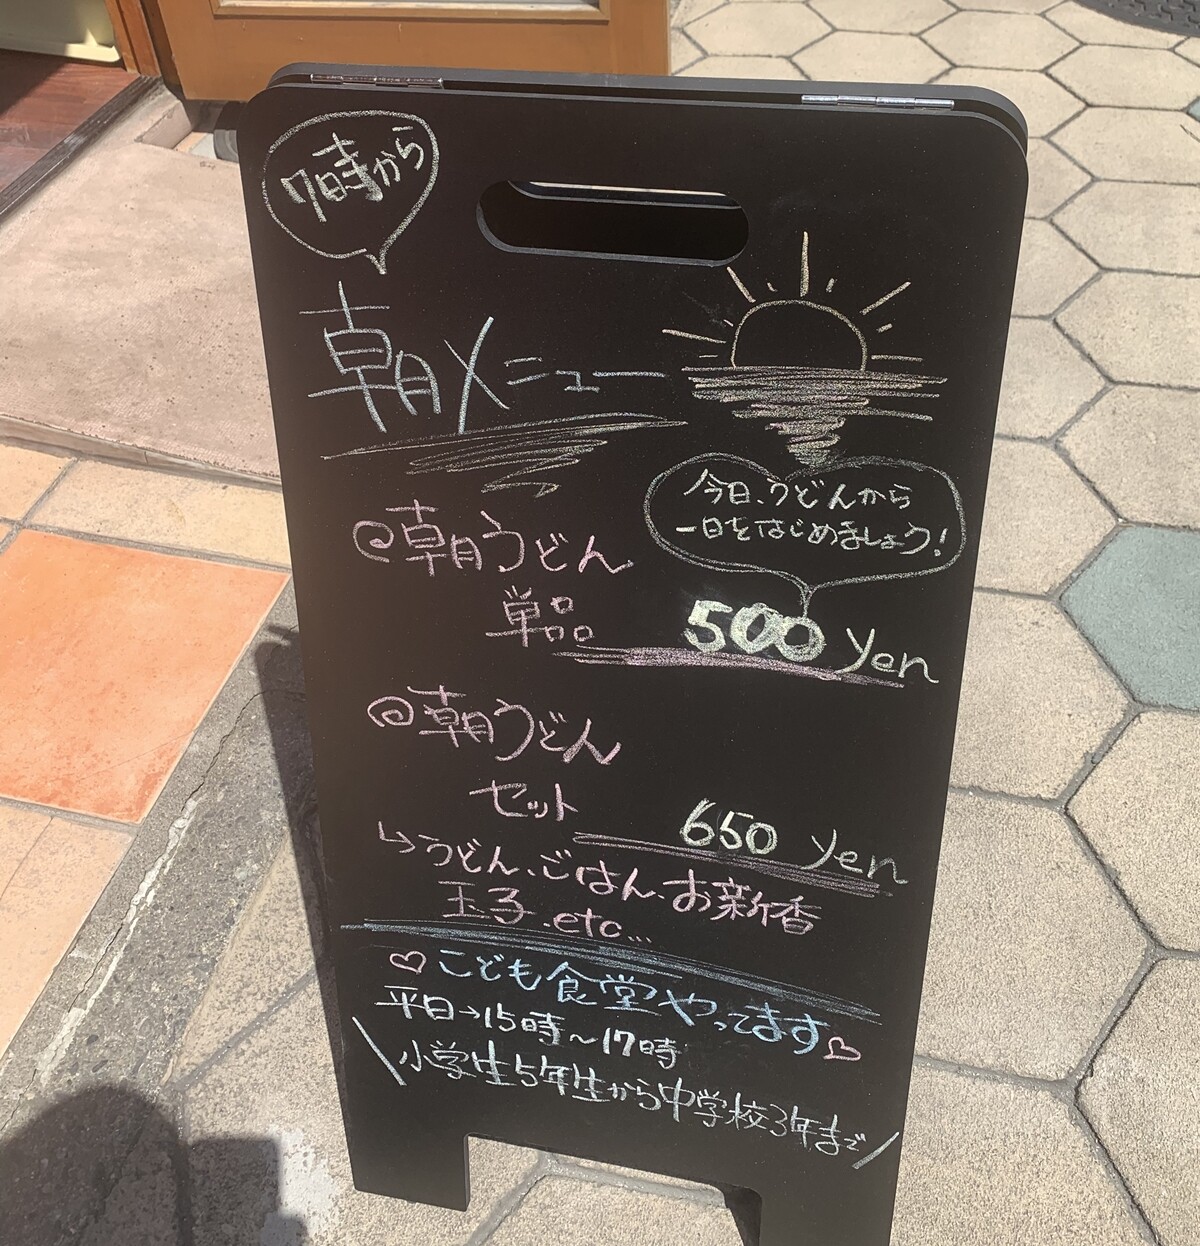 7時から
朝メニュー
今日、うどんから
一日をはじめましょう!
@朝うどん
単品 500 yen
@朝うどん
セット 650 yen
↳うどん、ごはん、お新香
玉子.etc...
♡こども食堂やってます♡
平日→15時〜17時
\小学生5年生から中学校3年まで/